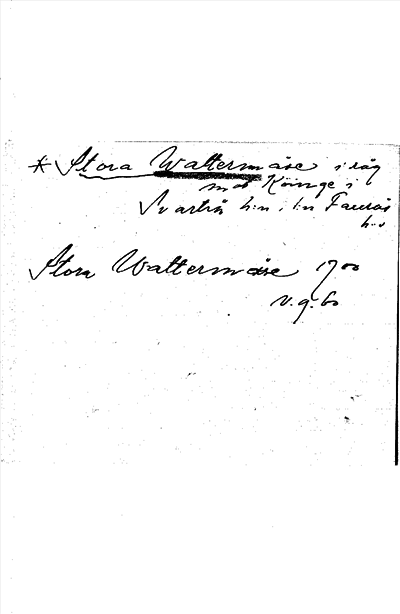 * Stora Wattermåse i råg
mot Köinge i
Svartrå h:n, i:n Faurås
h:d
Stora Wattermåse 1700
v.g. 60